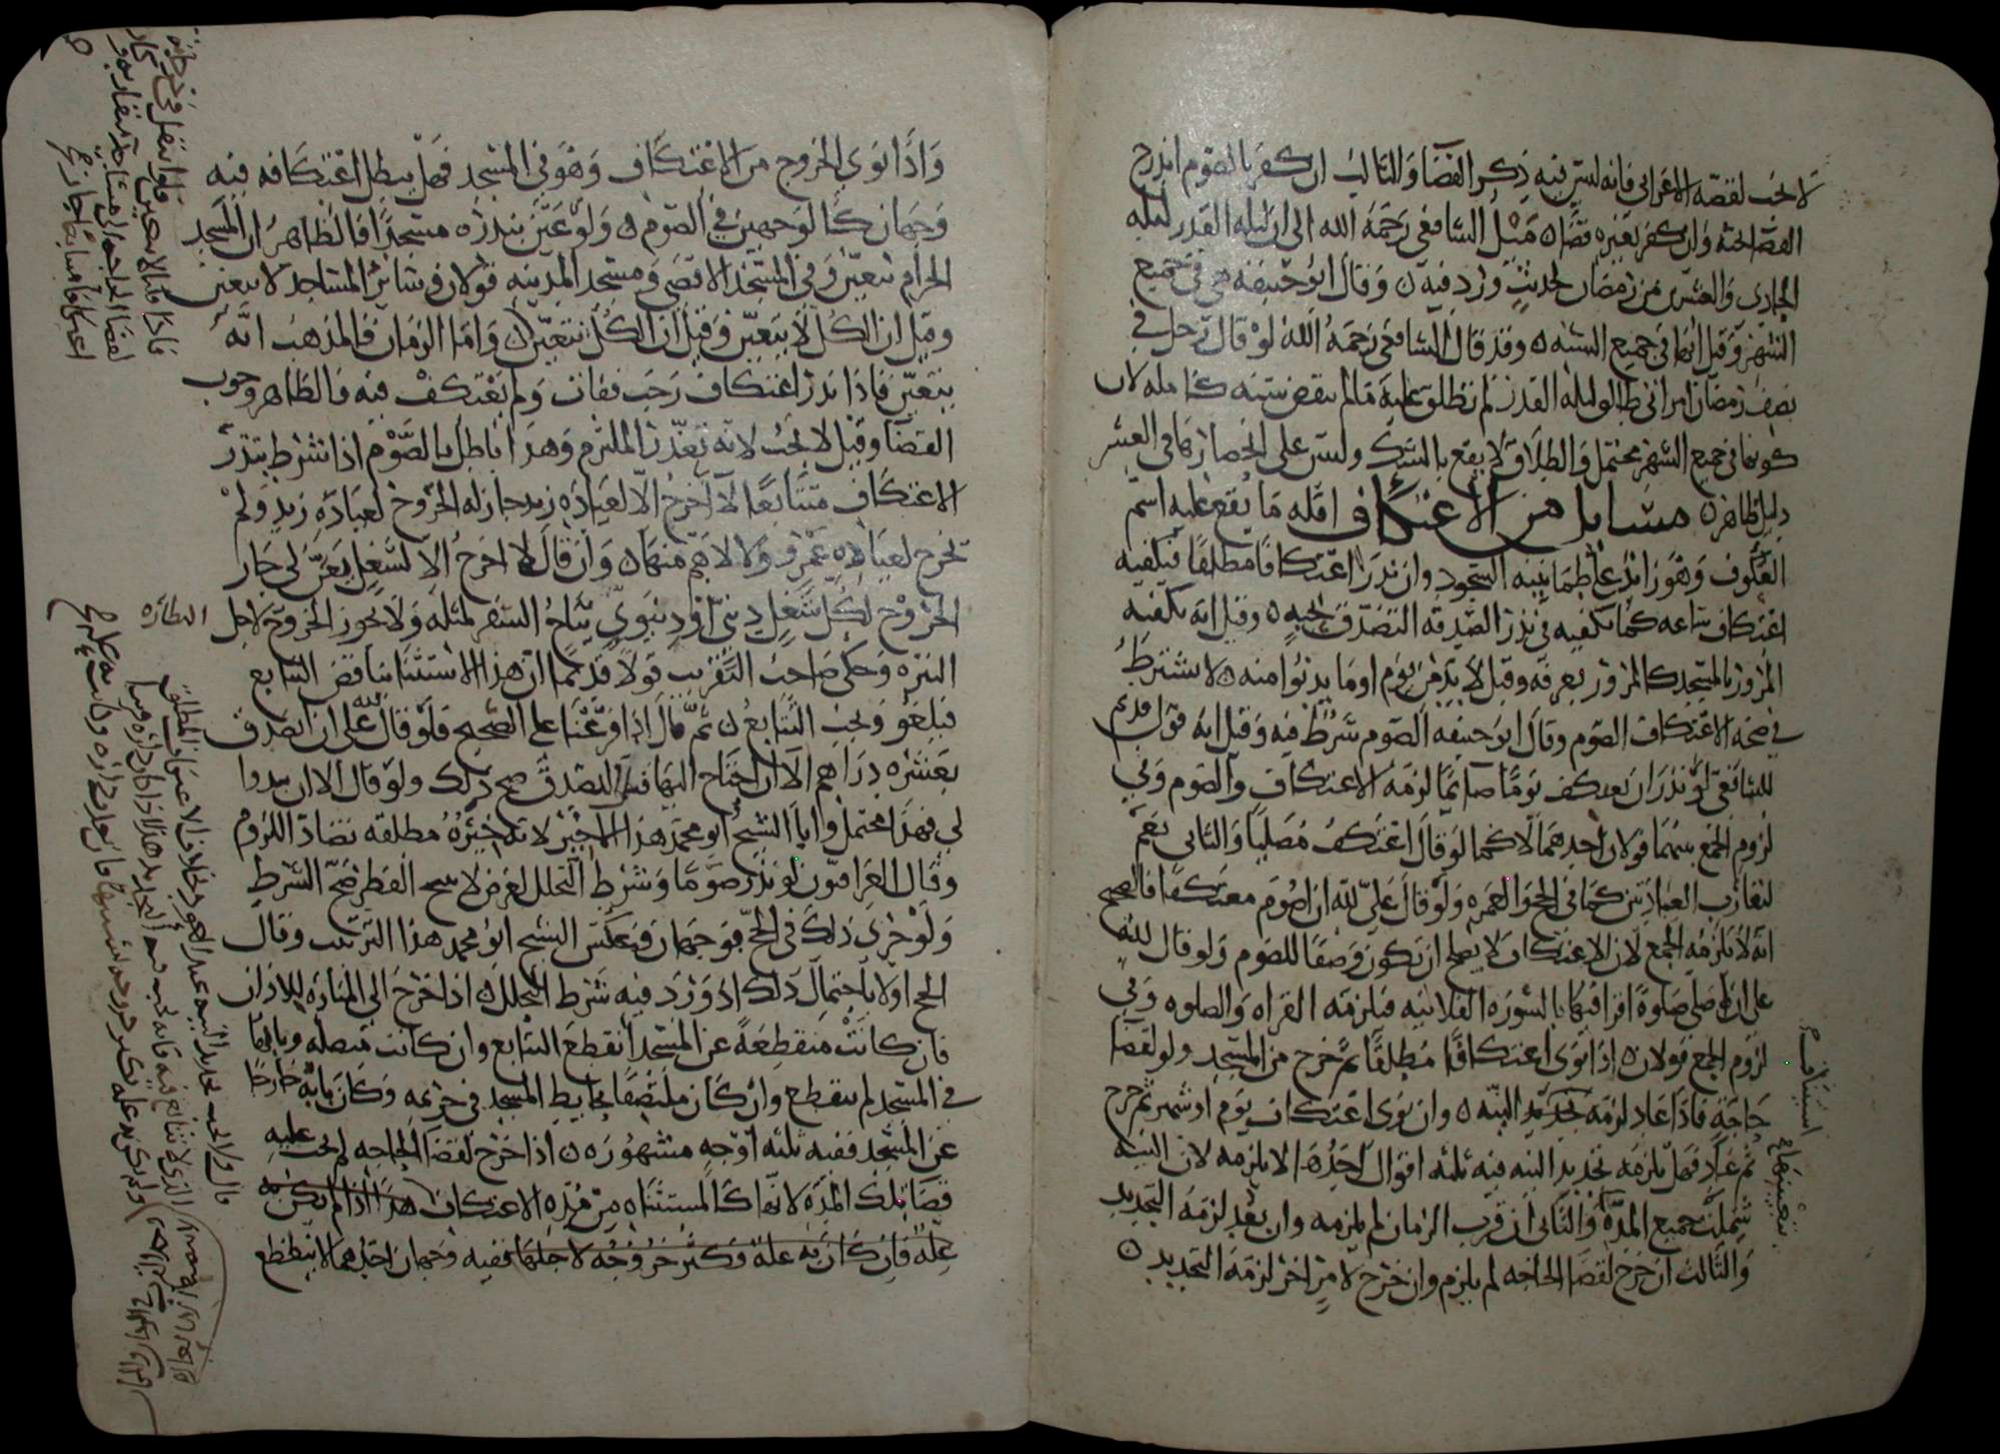 لا يجب لقصة الاعرابي فانه ليس فيه ذكر القضا والثالث ان كفر بالصوم اندرج
القضا تحته وان كفر بغيره قضا ه ميل الشافعي رحمه الله الى ان ليله القدر ليله
الحادي والعشرين من رمضان لحديث ورد فيه ه وقال ابو حنيفه هي في جميع
الشهر وقيل انها في جميع السنه ه وقد قال الشافعي رحمه الله لو قال رجل في
نصف رمضان امراتي طالق ليلة القدر لم تطلق عليه ما لم تنقض سنه كامله لان
كونها في جميع الشهر محتمل والطلاق لا يقع بالشك وليس على انحصارها في العشر
دليل ظاهر ه مسايل من الاعتكاف اقله ما يقع عليه اسم
العكوف وهو زائد على طمانينه السجود وان نذر اعتكافا مطلقا فيكفيه
اعتكاف ساعه كما يكفيه في نذر الصدقه التصدق بحبه ه وقيل انه يكفيه
المرور بالمسجد كالمرور بعرفه وقيل لا بد من يوم او ما يدنوا منه ه لا يشترط
في صحة الاعتكاف الصوم وقال ابو حنيفه الصوم شرط فيه وقيل انه قول قديم
للشافعي لو نذر ان يعتكف يوما صائما لزمه الاعتكاف والصوم وفي
لزوم الجمع بينهما قولان احدهما لا كما لو قال اعتكف مصليا والثاني نعم
لتقارب العبادتين كما في الحج والعمره ولو قال علي لله ان اصوم معتكفا فالصحيح
انه لا يلزمه الجمع لان الاعتكاف لا يصلح ان يكون وصفا للصوم ولو قال لله
علي ان اصلي صلوة اقرا فيها بالسورة الفلانيه فيلزمه القراه والصلوه وفي
لزوم الجمع قولان ه اذا نوى اعتكافا مطلقا ثم خرج من المسجد ولو لقضا
حاجة فاذا عاد لزمه تجديد النيه ه وان نوى اعتكاف يوم او شهر ثم خرج
ثم عاد فهل يلزمه تجديد النيه فيه ثلثه اقوال احدها لا يلزمه لان النيه
شملت جميع المدة والثاني ان قرب الزمان لم يلزمه وان بعد لزمه التجديد
والثالث ان خرج لقضا الحاجه لم يلزم وان خرج لامر اخر لزمه التجديد ه
واذا نوى الخروج من الاعتكاف وهو في المسجد فهل يبطل اعتكافه فيه
وجهان كالوجهين في الصوم ه ولو عين بنذره مسجدا فالظاهر ان المسجد
الحرام يتعين وفي المسجد الاقصى ومسجد المدينه قولان وسائر المساجد لا يتعين
وقيل ان الكل لا يتعين وقيل ان الكل يتعين ه واما الزمان فالمذهب انه
يتعين فاذا نذر اعتكاف رجب ففات ولم يعتكف فيه فالظاهر وجوب
القضا وقيل لا يجب لانه تعذر الملتزم وهذا باطل بالصوم اذا شرط بنذر
الاعتكاف متتابعا لا اخرج الا لعيادة زيد جاز له الخروج لعيادة زيد ولم
يخرج لعيادة عمرو ولا لاهم منها ه وان قال لا اخرج الا لشغل يعن لي جاز
الخروج لكل شغل ديني او دنيوي يباح السفر لمثله ولا يجوز الخروج لاجل
النظاره
النزه وحكى صاحب التقريب قولا قديما ان هذا الاستثنا يناقض التتابع
فيلغو ويجب التتابع ه ثم قال اذا فرعنا على الصحيح فلو قال لله علي ان اتصدق
بعشرة دراهم الا ان احتاج اليها قبل التصدق صح ذلك ولو قال الا ان يبدوا
لي فهذا محتمل وابا الشيخ ابو محمد هذا الاخير لانه خيره مطلقه تضاد اللزوم
وقال العراقيون لو نذر صوما وشرط التحلل لغرض لا يبيح الفطر صح الشرط
ولو جرى ذلك في الحج فوجهان وعكس الشيخ ابو محمد هذا الترتيب وقال
الحج اولا باحتمال ذلك اذ ورد فيه شرط التحلل ه اذا خرج الى المناره للاذان
فان كانت منقطعة عن المسجد انقطع التتابع وان كانت متصله وبابها
في المسجد لم ينقطع وان كان ملتصقا بحايط المسجد في حريمه وكان بابه خارجا
عن المسجد ففيه ثلثه اوجه مشهوره ه اذا خرج لقضا الحاجه لم يجب عليه
قضا تلك المدة لانها كالمستثناه من مدة الاعتكاف هذا اذا لم يكن به
علة فان كان به علة وكثر خروجه لاجلها ففيه وجهان احدهما لا ينقطع